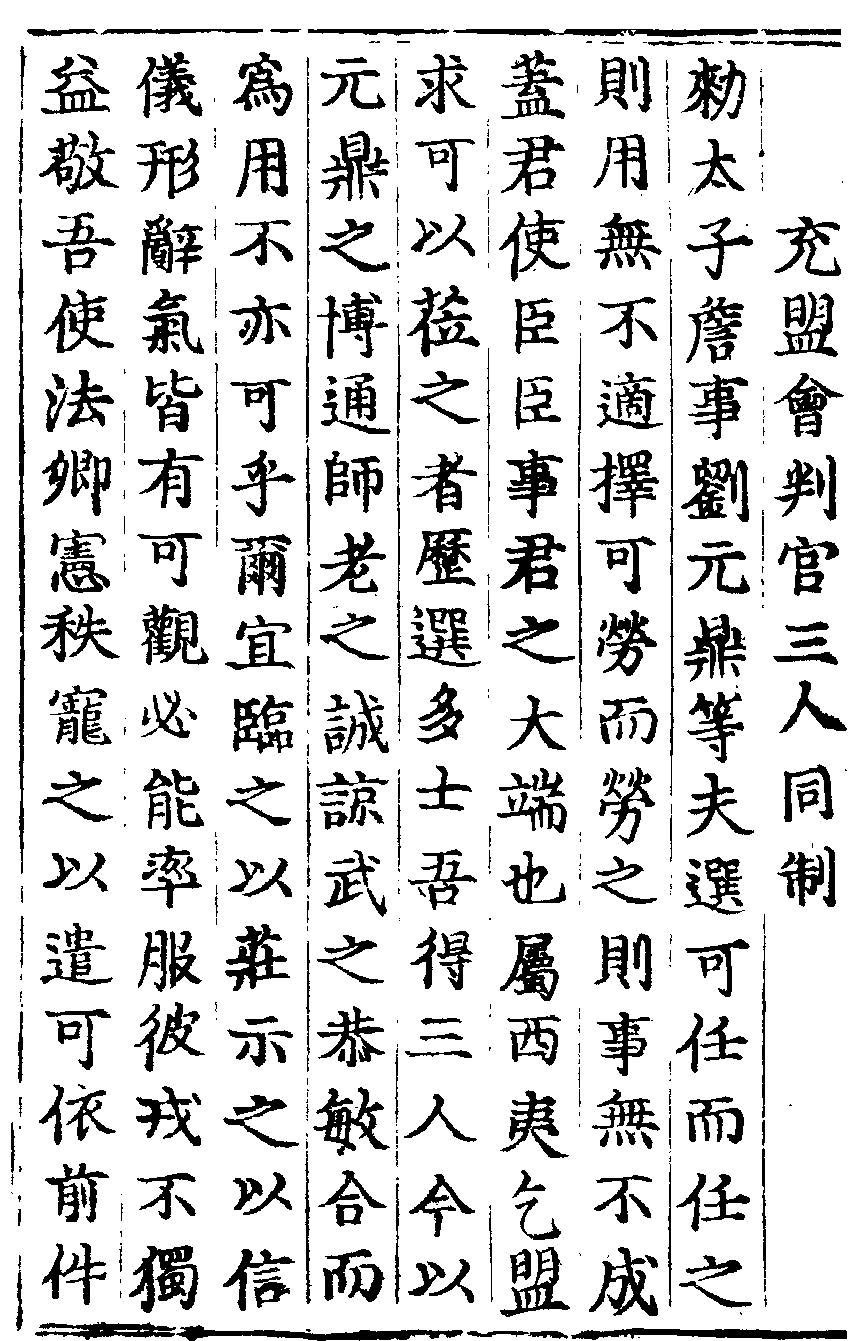 充盟會判官三人同制
勑太子詹事劉元鼎等夫選可任而任之
則用無不適擇可勞而勞之則事無不成
蓋君使臣臣事君之大端也屬西夷乞盟
求可以莅之者歷選多士吾得三人今以
元鼎之博通師老之誠諒武之恭敏合而
爲用不亦可乎爾宜臨之以莊示之以信
儀形辭氣皆有可觀必能率服彼戎不獨
益敬吾使法卿憲秩寵之以遣可依前件